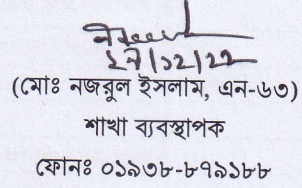 ২৭/১২/২২
(মোঃ নজরুল ইসলাম, এন-৬৩)
শাখা ব্যবস্থাপক
ফোনঃ ০১৯৩৮-৮৭৯১৮৮